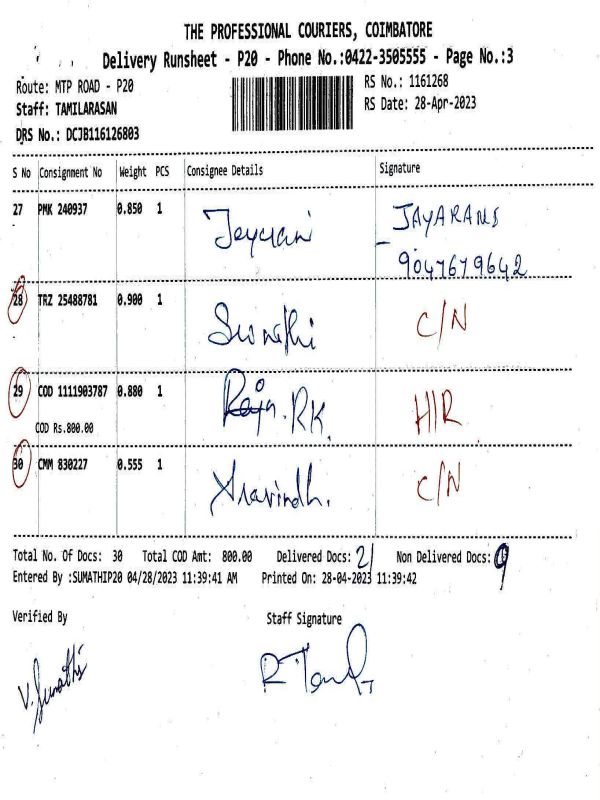 THE PROFESSIONAL COURIERS, COIMBATORE
Delivery Runsheet - P20 - Phone No.:0422-3505555 - Page No.:3
Route: MTP ROAD - P20
RS No.: 1161268
Staff: TAMILARASAN
RS Date: 28-Apr-2023
DRS No.: DCJB116126803
S No Consignment No Weight PCS Consignee Details Signature
27 PMK 240937 0.850 1 JAYARANI
9047679642
28 TRZ 25488781 0.900 1 C/N
29 COD 1111903787 0.880 1 Raja. RK. HIR
COD Rs.800.00
30 CMM 830227 0.555 1 Aravindh. C/N
Total No. Of Docs: 30 Total COD Amt: 800.00 Delivered Docs: 21 Non Delivered Docs: 9
Entered By :SUMATHIP20 04/28/2023 11:39:41 AM Printed On: 28-04-2023 11:39:42
Verified By Staff Signature
V. Sumathi